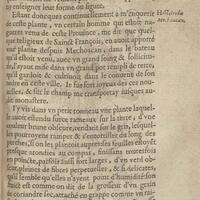 enseigner leur forme ou figure.
Estant doncques continuellement à m'enquerir
de ceste plante, vn certain homme qui estoit na-
gueres venu de ceste Prouince, me dit que quel-
que religieux de Sainct François, en auoit apporté
vne plante depuis Mechoacan, dans le bateau
où il estoit venu, auec vn grand soing & sollicitu-
de, l'ayant mise dans vn grand pot remply de terre,
qu'il gardoit & cultiuoit dans le conuent de son
ordre en ceste ville. Ie fus fort ioyeux de ces nou-
uelles, & feis le champ me transportay iusques au-
dit monastere.
I'y vis dans vn petit tonneau vne plante laquel-
le auoit estendu force rameaux sur la terre, d'vne
couleur brune obscure, cendrée sur le gris, lesquel-
les pourroyent ramper & s'entortiller du long des
perches, si on les plantoit aupres: ses feuilles estoyẽt
presque arondies au compas, finissans toutesfois
en poincte, passees fueil fort larges, d'vn verd ob-
scur, pleines de fibres perpetuelles, & si delicates,
qu'il semble qu'elles n'ayent point d'humeur: son
fruict est comme on dit de la grosseur d'vn grain
de coriandre sec, attaché en grappe comme vn rai-
Histoire du